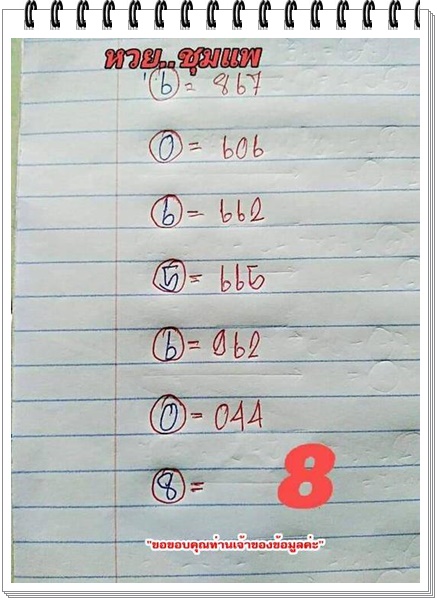 หวย..ชุมแพ
6 = 867
0 = 606
6 = 662
5 = 665
6 = 962
0 = 044
8 = 8
"ขอขอบคุณท่านเจ้าของข้อมูลค่ะ"